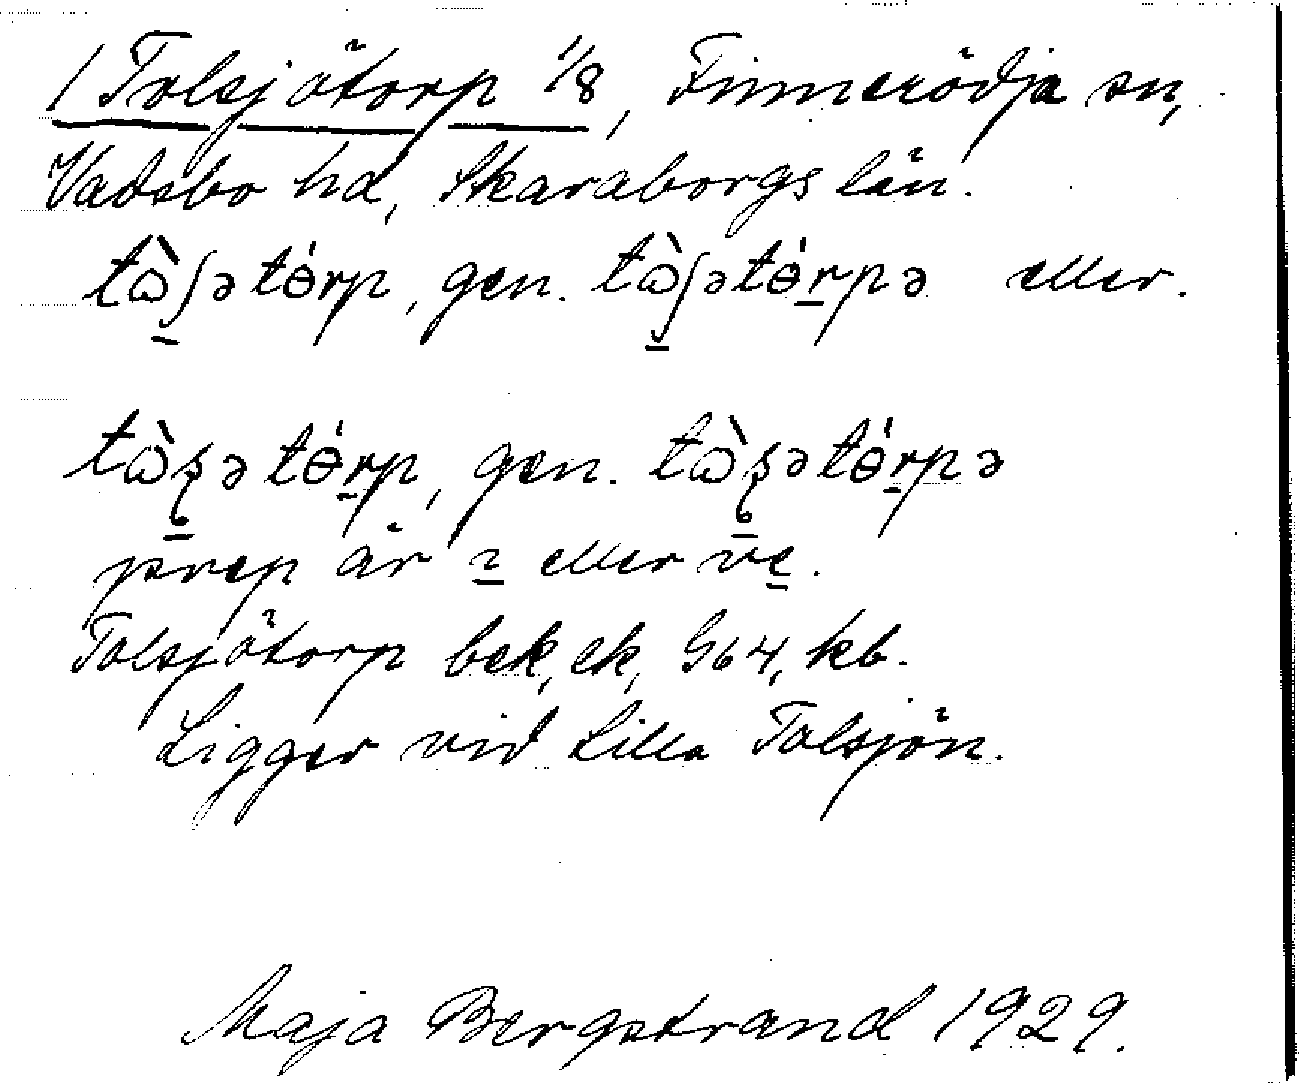 1 Tolsjötorp 1/8, Finnerödja sn,
Vadsbo hd, Skaraborgs län.
tɷ̀ʃətɵ́rp, gen. tɷ̀ʃətɵ́rpə eller.
tɷ̀ʂətɵ́rp, gen. tɷ̀ʂətɵ́rpə
prep är ɩ eller ve.
Tolsjötorp bek, ek, G64, kb.
Ligger vid Lilla Tolsjön.
Maja Bergstrand 1929.